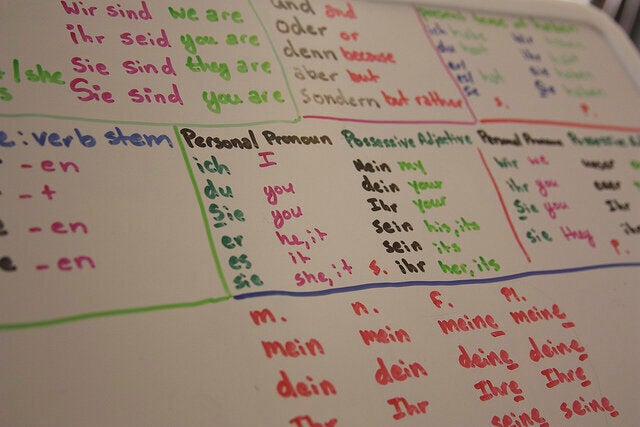 Wir sind we are
ihr seid you are
sie sind they are
Sie sind you are
/she
und and
Oder or
denn because
aber but
sondern but rather
s. P.
verb stem
- en
- t
- en
- en
Personal Pronoun Possessive Adjective
ich I Mein my
du you dein your
Sie you Ihr your
er he, it sein his, its
es it sein its
sie she, it s. ihr her, its
Personal Pronoun
wir we unser
ihr you euer
Sie you Ihr
sie they
P.
m. n. f. Pl.
mein mein meine meine
dein dein deine deine
Ihr Ihr Ihre Ihre
seine seine